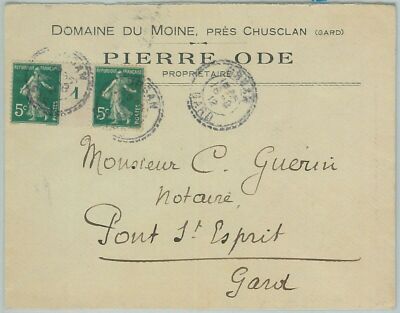 DOMAINE DU MOINE, PRÈS CHUSCLAN (GARD)
PIERRE ODE
PROPRIÉTAIRE
REPUBLIQUE FRANÇAISE
5c
POSTES
REPUBLIQUE FRANÇAISE
5c
POSTES
GARD
Monsieur C. Guérin
Notaire,
Pont St Esprit
Gard